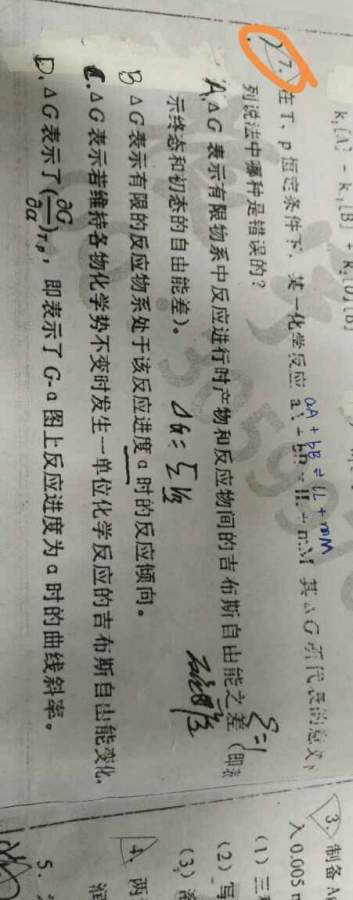 k₁[A] - k₋₁[B] + k₂[D][B]
17. 在 T、p 恒定条件下，某一化学反应 aA + bB = lL + mM 其 ΔG 所代表的意义下
aA + bB ⇌ lL + mM
列说法中哪种是错误的？
A. ΔG 表示有限物系中反应进行时产物和反应物间的吉布斯自由能之差（即表
示终态和初态的自由能差）。
ξ=1
B ΔG 表示有限的反应物系处于该反应进度 α 时的反应倾向。
C. ΔG 表示若维持各物化学势不变时发生一单位化学反应的吉布斯自由能变化.
D. ΔG 表示了(∂G/∂α)T,p，即表示了 G-α 图上反应进度为 α 时的曲线斜率。
3. 制备
入 0.005
(1)
(2) 写
(3)
4. 两
5.